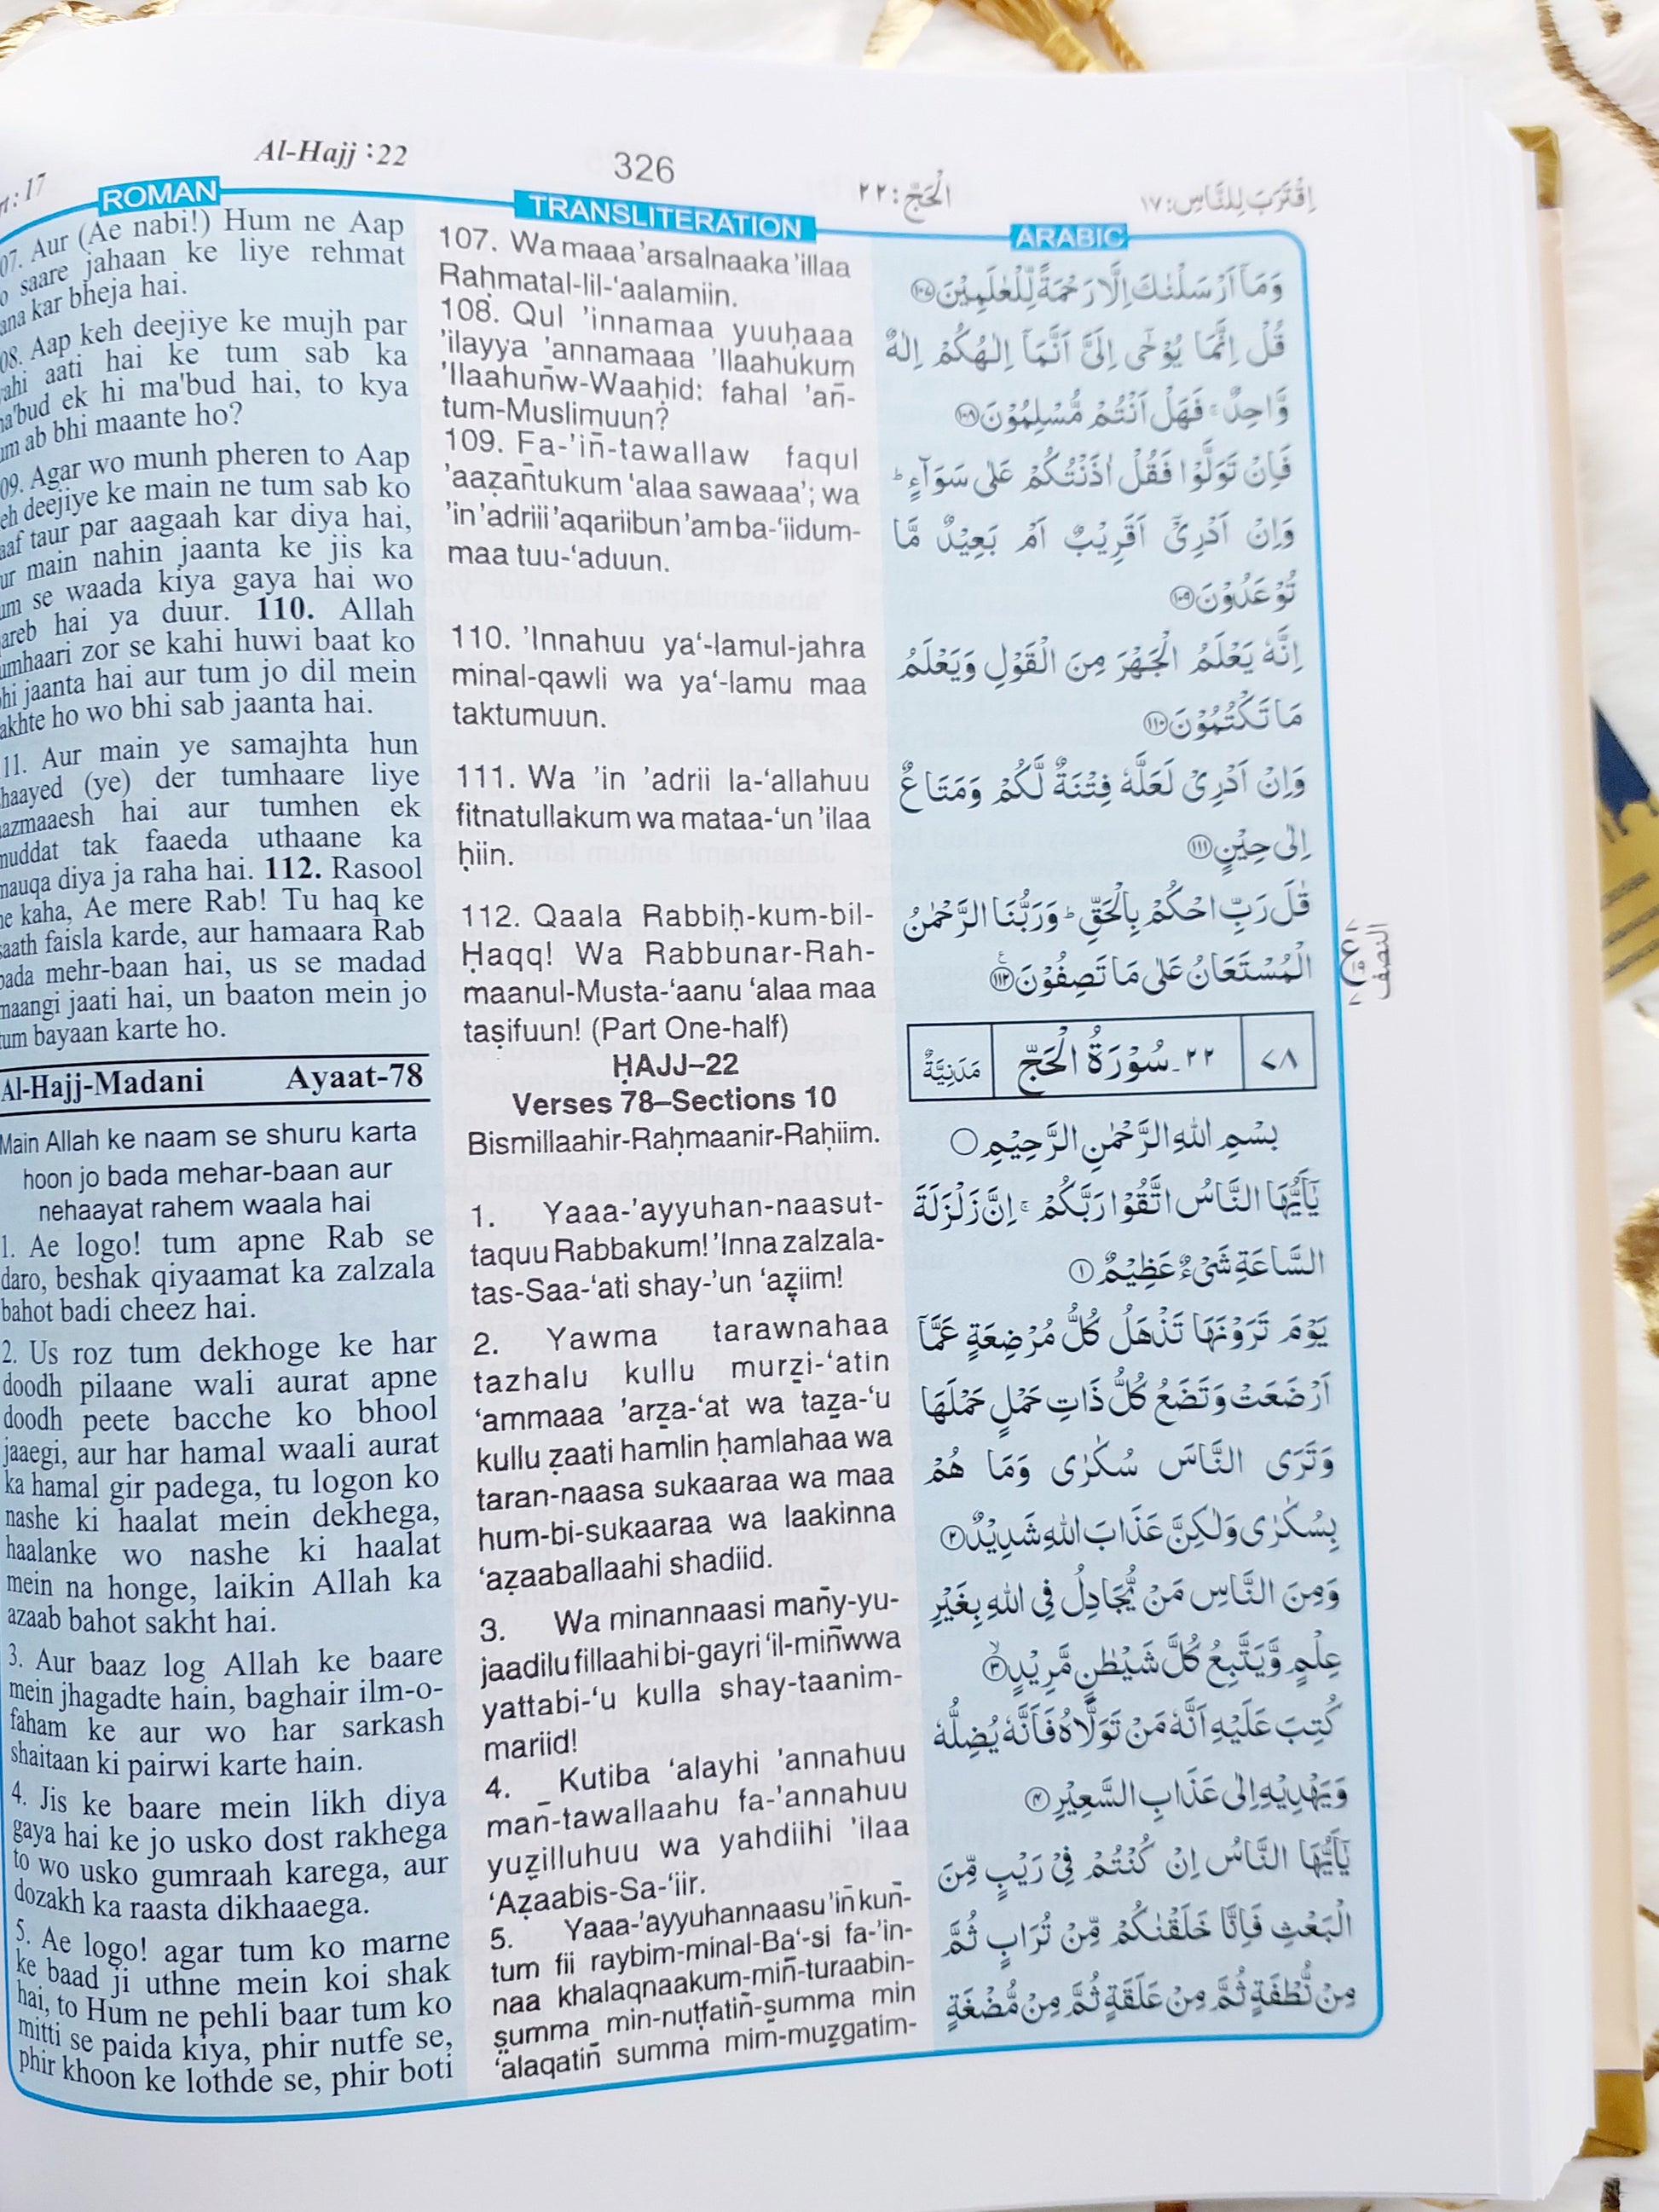 Al-Hajj :22
326
الْحَجّ:٢٢
اِقْتَرَبَ لِلنَّاسِ:١٧
ROMAN
07. Aur (Ae nabi!) Hum ne Aap
saare jahaan ke liye rehmat
kar bheja hai.
08. Aap keh deejiye ke mujh par
aati hai ke tum sab ka
ma'bud ek hi ma'bud hai, to kya
ab bhi maante ho?
09. Agar wo munh pheren to Aap
deejiye ke main ne tum sab ko
taur par aagaah kar diya hai,
main nahin jaanta ke jis ka
se waada kiya gaya hai wo
hai ya duur. 110. Allah
zor se kahi huwi baat ko
jaanta hai aur tum jo dil mein
ho wo bhi sab jaanta hai.
11. Aur main ye samajhta hun
(ye) der tumhaare liye
hai aur tumhen ek
muddat tak faaeda uthaane ka
mauqa diya ja raha hai. 112. Rasool
kaha, Ae mere Rab! Tu haq ke
saath faisla karde, aur hamaara Rab
bada mehr-baan hai, us se madad
maangi jaati hai, un baaton mein jo
tum bayaan karte ho.
Al-Hajj-Madani Ayaat-78
Main Allah ke naam se shuru karta
hoon jo bada mehar-baan aur
nehaayat rahem waala hai
1. Ae logo! tum apne Rab se
daro, beshak qiyaamat ka zalzala
bahot badi cheez hai.
2. Us roz tum dekhoge ke har
doodh pilaane wali aurat apne
doodh peete bacche ko bhool
jaaegi, aur har hamal waali aurat
ka hamal gir padega, tu logon ko
nashe ki haalat mein dekhega,
haalanke wo nashe ki haalat
mein na honge, laikin Allah ka
azaab bahot sakht hai.
3. Aur baaz log Allah ke baare
mein jhagadte hain, baghair ilm-o-
faham ke aur wo har sarkash
shaitaan ki pairwi karte hain.
4. Jis ke baare mein likh diya
gaya hai ke jo usko dost rakhega
to wo usko gumraah karega, aur
dozakh ka raasta dikhaaega.
5. Ae logo! agar tum ko marne
ke baad ji uthne mein koi shak
hai, to Hum ne pehli baar tum ko
mitti se paida kiya, phir nutfe se,
phir khoon ke lothde se, phir boti
TRANSLITERATION
107. Wa maaa 'arsalnaaka 'illaa
Raḥmatal-lil-‘aalamiin.
108. Qul 'innamaa yuuḥaaa
'ilayya 'annamaaa 'Ilaahukum
'Ilaahun̄w-Waaḥid: fahal 'an̄-
tum-Muslimuun?
109. Fa-'in̄-tawallaw faqul
'aaẓan̄tukum ‘alaa sawaaa'; wa
'in 'adriii 'aqariibun 'am ba-‘iidum-
maa tuu-‘aduun.
110. 'Innahuu ya‘-lamul-jahra
minal-qawli wa ya‘-lamu maa
taktumuun.
111. Wa 'in 'adrii la-‘allahuu
fitnatullakum wa mataa-‘un 'ilaa
ḥiin.
112. Qaala Rabbiḥ-kum-bil-
Ḥaqq! Wa Rabbunar-Rah-
maanul-Musta-‘aanu ‘alaa maa
taṣifuun! (Part One-half)
ḤAJJ–22
Verses 78–Sections 10
Bismillaahir-Raḥmaanir-Raḥiim.
1. Yaaa-'ayyuhan-naasut-
taquu Rabbakum! 'Inna zalzala-
tas-Saa-‘ati shay-'un ‘aẓiim!
2. Yawma tarawnahaa
tazhalu kullu murẓi-‘atin
‘ammaaa 'arẓa-‘at wa taẓa-‘u
kullu ẓaati hamlin ḥamlahaa wa
taran-naasa sukaaraa wa maa
hum-bi-sukaaraa wa laakinna
‘aẓaaballaahi shadiid.
3. Wa minannaasi man̄y-yu-
jaadilu fillaahi bi-gayri ‘il-min̄wwa
yattabi-‘u kulla shay-taanim-
mariid!
4. Kutiba ‘alayhi 'annahuu
man̄-tawallaahu fa-'annahuu
yuẓilluhuu wa yahdiihi 'ilaa
‘Aẓaabis-Sa-‘iir.
5. Yaaa-'ayyuhannaasu 'in̄ kun̄-
tum fii raybim-minal-Ba‘-si fa-'in-
naa khalaqnaakum-min̄-turaabin-
summa min-nuṭfatin̄-summa min
‘alaqatin̄ summa mim-muẓgatim-
ARABIC
وَمَآ اَرْسَلْنٰكَ اِلَّا رَحْمَةً لِّلْعٰلَمِيْنَ ۝١٠٧
قُلْ اِنَّمَا يُوْحٰٓى اِلَيَّ اَنَّمَآ اِلٰهُكُمْ اِلٰهٌ
وَّاحِدٌ ۚ فَهَلْ اَنْتُمْ مُّسْلِمُوْنَ ۝١٠٨
فَاِنْ تَوَلَّوْا فَقُلْ اٰذَنْتُكُمْ عَلٰى سَوَآءٍ ؕ
وَاِنْ اَدْرِيْٓ اَقَرِيْبٌ اَمْ بَعِيْدٌ مَّا
تُوْعَدُوْنَ ۝١٠٩
اِنَّهٗ يَعْلَمُ الْجَهْرَ مِنَ الْقَوْلِ وَيَعْلَمُ
مَا تَكْتُمُوْنَ ۝١١٠
وَاِنْ اَدْرِيْ لَعَلَّهٗ فِتْنَةٌ لَّكُمْ وَمَتَاعٌ
اِلٰى حِيْنٍ ۝١١١
قٰلَ رَبِّ احْكُمْ بِالْحَقِّ ؕ وَرَبُّنَا الرَّحْمٰنُ
الْمُسْتَعَانُ عَلٰى مَا تَصِفُوْنَ ۝١١٢
النصف
٧٨ ٢٢۔سُوْرَةُ الْحَجِّ مَدَنِيَّةٌ
بِسْمِ اللّٰهِ الرَّحْمٰنِ الرَّحِيْمِ ۝
يٰٓاَيُّهَا النَّاسُ اتَّقُوْا رَبَّكُمْ ۚ اِنَّ زَلْزَلَةَ
السَّاعَةِ شَيْءٌ عَظِيْمٌ ۝١
يَوْمَ تَرَوْنَهَا تَذْهَلُ كُلُّ مُرْضِعَةٍ عَمَّآ
اَرْضَعَتْ وَتَضَعُ كُلُّ ذَاتِ حَمْلٍ حَمْلَهَا
وَتَرَى النَّاسَ سُكٰرٰى وَمَا هُمْ
بِسُكٰرٰى وَلٰكِنَّ عَذَابَ اللّٰهِ شَدِيْدٌ ۝٢
وَمِنَ النَّاسِ مَنْ يُّجَادِلُ فِي اللّٰهِ بِغَيْرِ
عِلْمٍ وَّيَتَّبِعُ كُلَّ شَيْطٰنٍ مَّرِيْدٍ ۝٣
كُتِبَ عَلَيْهِ اَنَّهٗ مَنْ تَوَلَّاهُ فَاَنَّهٗ يُضِلُّهٗ
وَيَهْدِيْهِ اِلٰى عَذَابِ السَّعِيْرِ ۝٤
يٰٓاَيُّهَا النَّاسُ اِنْ كُنْتُمْ فِيْ رَيْبٍ مِّنَ
الْبَعْثِ فَاِنَّا خَلَقْنٰكُمْ مِّنْ تُرَابٍ ثُمَّ
مِنْ نُّطْفَةٍ ثُمَّ مِنْ عَلَقَةٍ ثُمَّ مِنْ مُّضْغَةٍ